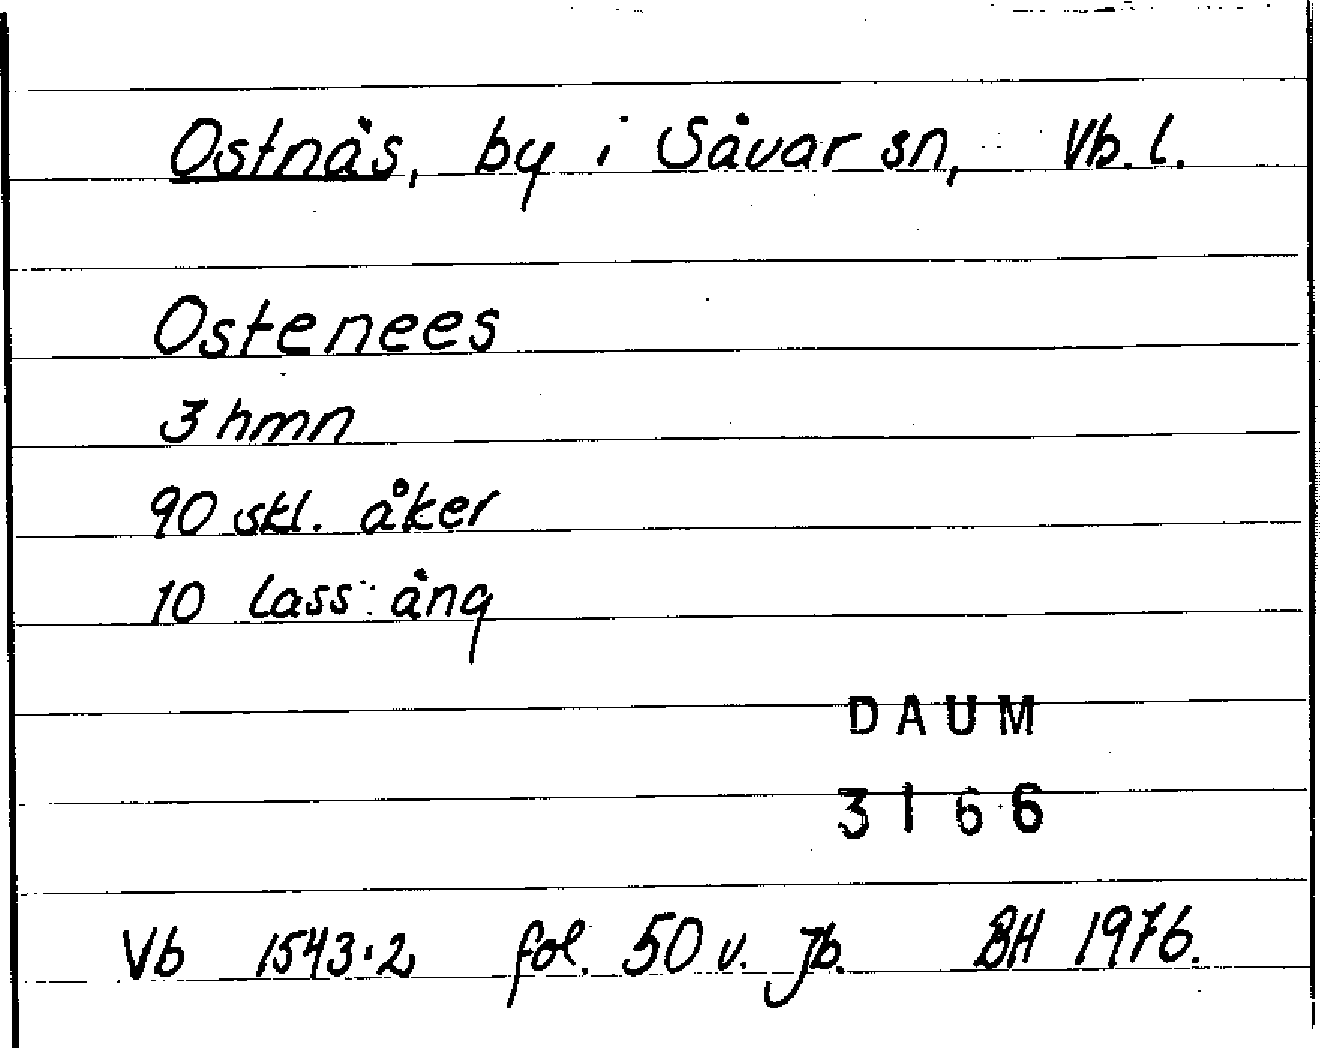 Ostnäs, by i Sävar sn, Vb. l.
Ostenees
3 hmn
90 skl. åker
10 lass äng
DAUM
3166
Vb 1543:2 fol. 50 v. Jb. BH 1976.